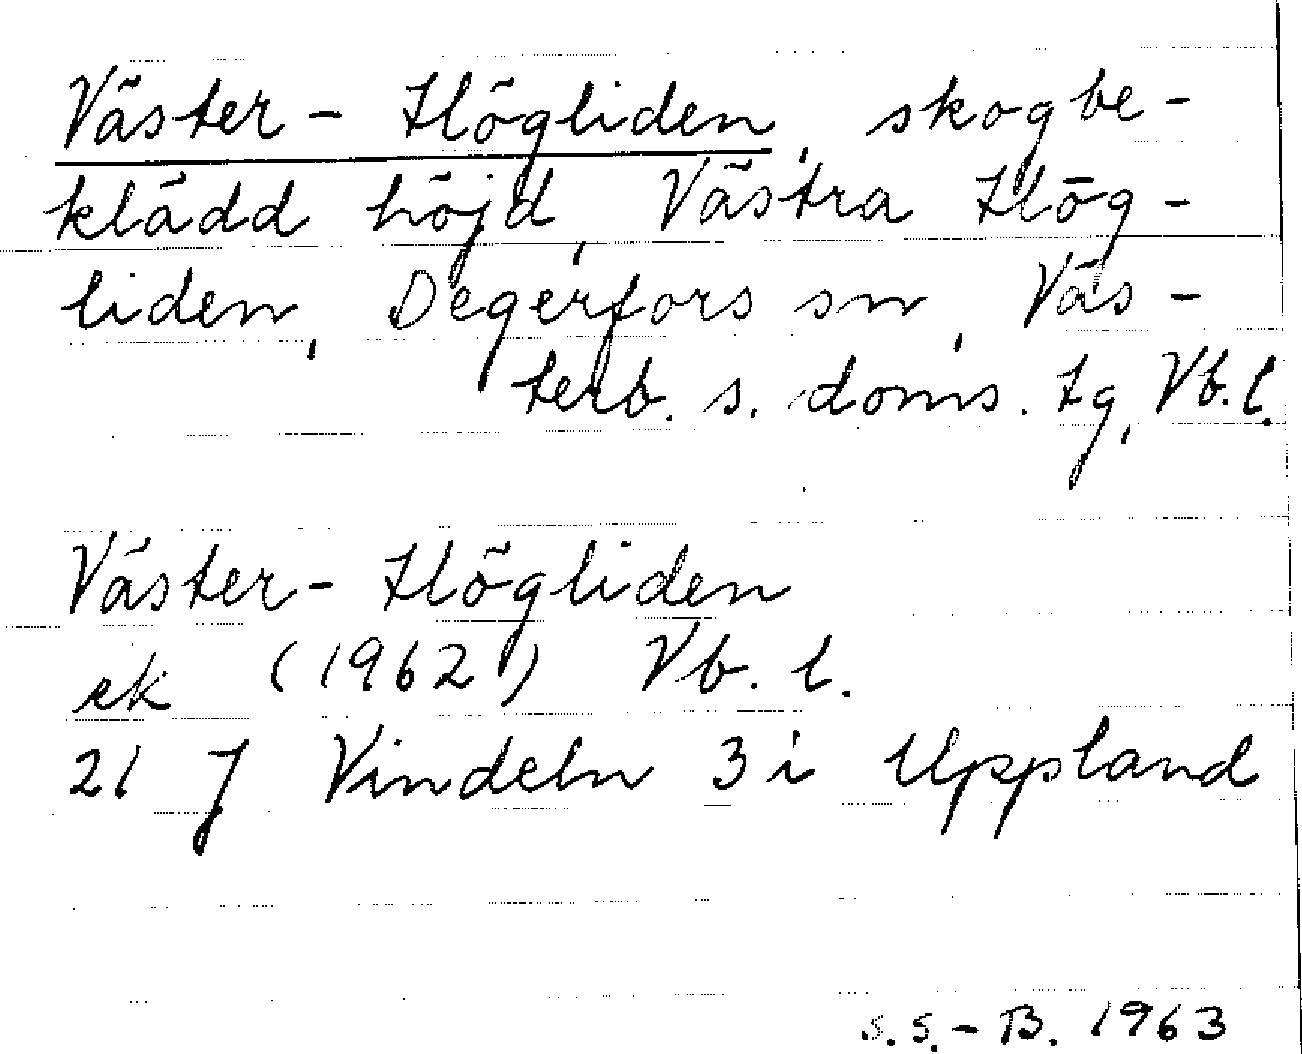 Väster-Högliden, skogbe-
klädd höjd, Västra Hög-
liden, Degerfors sn, Väs-
terb. s. doms. tg, Vb. l.
Väster-Högliden
ek (1962) Vb. l.
21 J Vindeln 3 i Uppland
S. S.-B. 1963